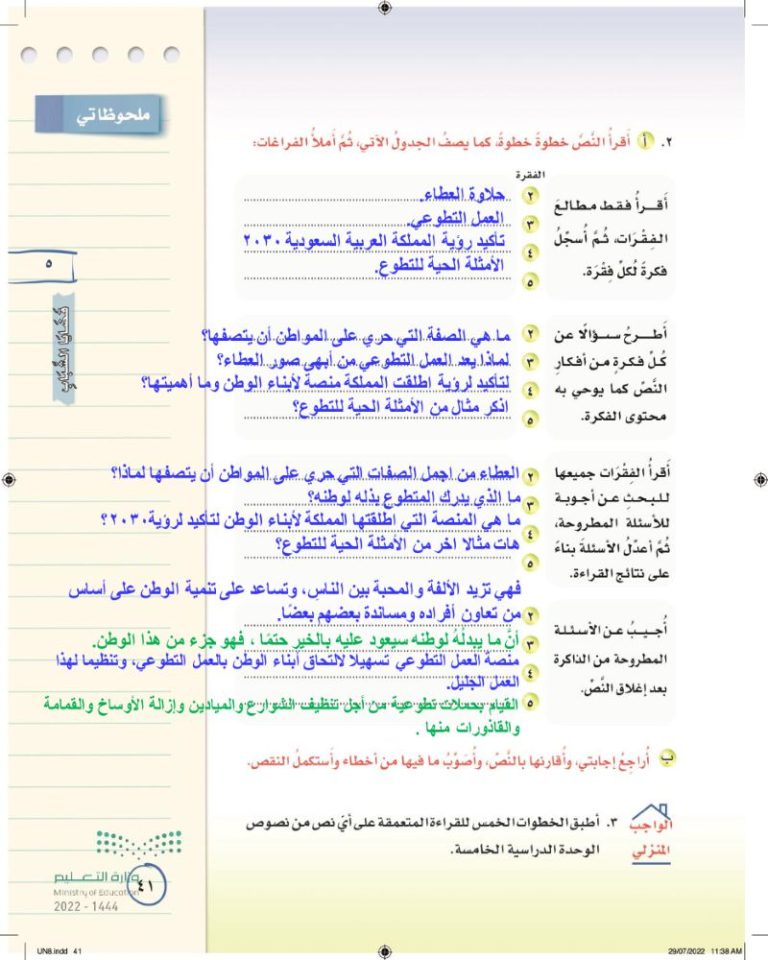 ملحوظاتي
٢. أ أَقرأُ النَّصَّ خطوةً خطوةً، كما يصفُ الجدولُ الآتي، ثُمَّ أملأُ الفراغات:
الفقرة
أَقــرأُ فقـط مطالـعَ
الفِقْـرَات، ثُـمَّ أُسـجِّلُ
فكرةً لكُلِّ فِقْرَة.
٢ حلاوة العطاء.
٣ العمل التطوعي.
٤ تأكيد رؤية المملكة العربية السعودية ٢٠٣٠
٥ الأمثلة الحية للتطوع.
أَطــرحُ ســؤالًا عن
كُلِّ فكـرةٍ مـن أفكـارِ
النَّصِّ كما يوحي به
محتوى الفكرة.
٢ ما هي الصفة التي حري على المواطن أن يتصفها؟
٣ لماذا يعد العمل التطوعي من أبهي صور العطاء؟
٤ لتأكيد لرؤية اطلقت المملكة منصة لأبناء الوطن وما أهميتها؟
٥ اذكر مثال من الأمثلة الحية للتطوع؟
أَقرأُ الفِقْرَات جميعها
للبحـثِ عـن أجـوبـة
للأسئلة المطروحة،
ثُمَّ أعدِّلُ الأسئلةَ بناءً
على نتائج القراءة.
٢ العطاء من اجمل الصفات التي حري على المواطن أن يتصفها لماذا؟
٣ ما الذي يدرك المتطوع بذله لوطنه؟
٤ ما هي المنصة التي اطلقتها المملكة لأبناء الوطن لتأكيد لرؤية٢٠٣٠؟
٥ هات مثالا اخر من الأمثلة الحية للتطوع؟
أُجيـبُ عـن الأسـئلـة
المطروحة من الذاكرة
بعد إغلاق النَّصِّ.
فهي تزيد الألفة والمحبة بين الناس، وتساعد على تنمية الوطن على أساس
٢ من تعاون أفراده ومساندة بعضهم بعضًا.
٣ أنَّ ما يبدلُهُ لوطنه سيعود عليه بالخيرِ حتمًا ، فهو جزء من هذا الوطن.
٤ منصة العمل التطوعي تسهيلاً لالتحاق أبناء الوطن بالعمل التطوعي، وتنظيما لهذا
العمل الجليل.
٥ القيام بحملات تطوعية من أجل تنظيف الشوارع والميادين وإزالة الأوساخ والقمامة
والقاذورات منها .
ب أُراجعُ إجابتي، وأُقارنها بالنَّصِّ، وأُصَوِّبُ ما فيها من أخطاء وأَستكملُ النقص.
الواجب
المنزلي
٣. أطبق الخطوات الخمس للقراءة المتعمقة على أيّ نص من نصوص
الوحدة الدراسية الخامسة.
٥
قضايا الشباب
وزارة التعليم
Ministry of Education
2022 - 1444
٤١
UN8.indd 41
29/07/2022 11:38 AM